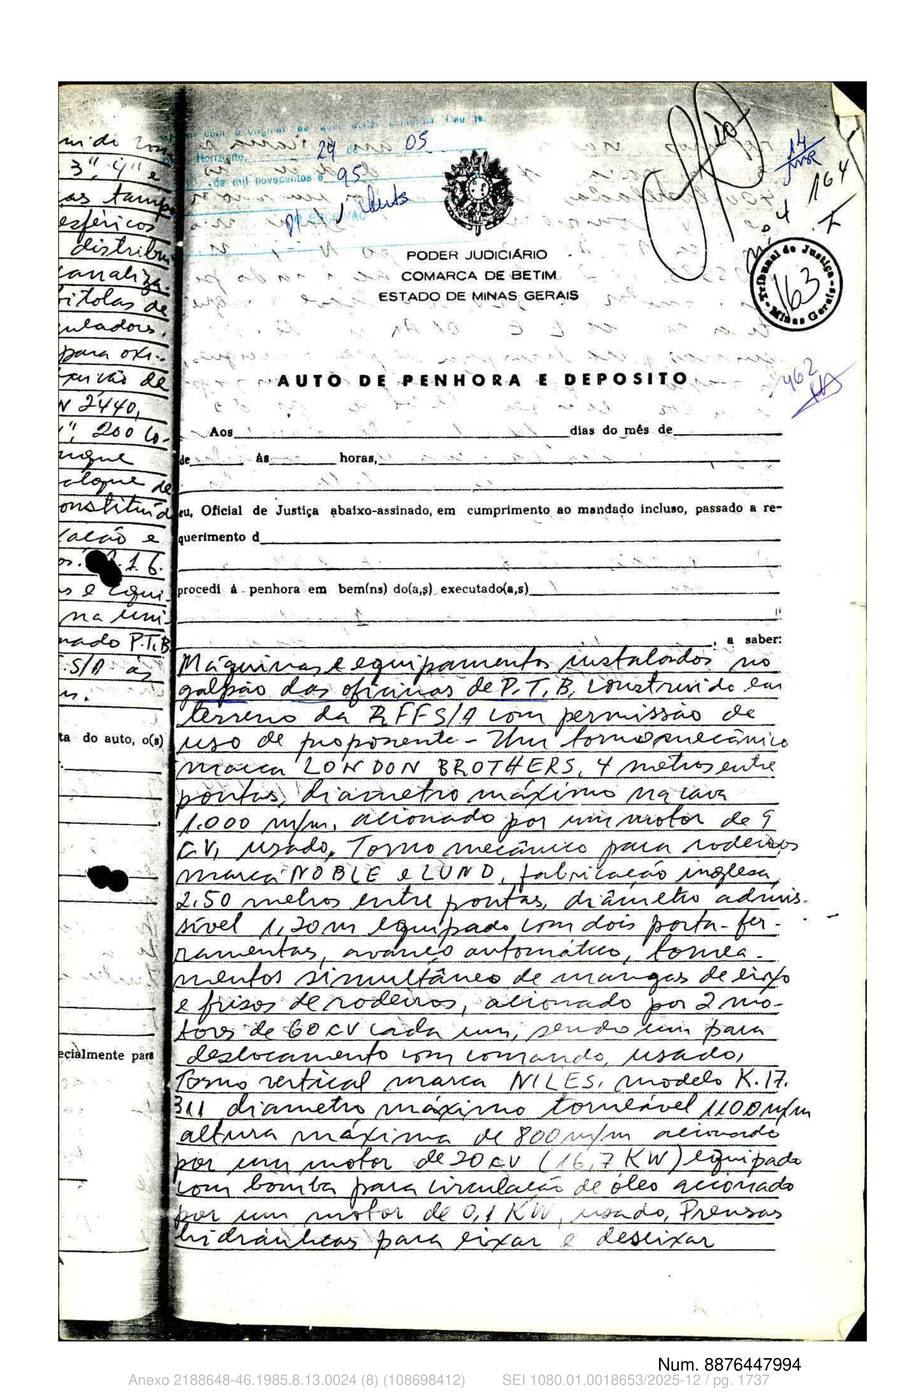 24 05
95
PODER JUDICIÁRIO
COMARCA DE BETIM
ESTADO DE MINAS GERAIS
14
164
Tribunal de Justiça
163
Minas Gerais
462
AUTO DE PENHORA E DEPOSITO
Aos dias do mês de
de às horas,
eu, Oficial de Justiça abaixo-assinado, em cumprimento ao mandado incluso, passado a re-
querimento d
procedi à penhora em bem(ns) do(a,s) executado(a,s)
, a saber:
Máquinas e equipamentos instalados no
galpão das oficinas de P.T.B, construido em
terreno da RFFS/A com permissão de
uso de proponente - Um torno mecânico
marca LONDON BROTHERS, 4 metros entre
pontas, diametro máximo na cava
1.000 m/m, acionado por um motor de 9
C.V, usado, Torno mecânico para rodeiros
marca NOBLE e LUND, fabricação inglesa,
2.50 metros entre pontas, diâmetro admis-
sível 1,20m equipado com dois porta-fer-
ramentas, avanço automático, tornea-
mentos simultâneo de mangas de eixo
e frisos de rodeiros, acionado por 2 mo-
tores de 60 cv cada um, sendo um para
deslocamento com comando, usado,
Torno vertical marca NILES, modelo K.17.
311 diametro máximo torneável 1100 m/m
altura máxima de 800 m/m acionado
por um motor de 20 cv (16,7 KW) equipado
com bomba para circulação de óleo acionado
por um motor de 0,1 KW, usado, Prensas
hidráulicas para eixar e deseixar
3", 4" e
esféricos
canaliza
bitolas de
para oxi-
2440,
", 200 Co-
cação e
.1.6.
na uni
nado P.T.B
.S/A às
ta do auto, o(s)
ecialmente para
Num. 8876447994
Anexo 2188648-46.1985.8.13.0024 (8) (108698412) SEI 1080.01.0018653/2025-12 / pg. 1737